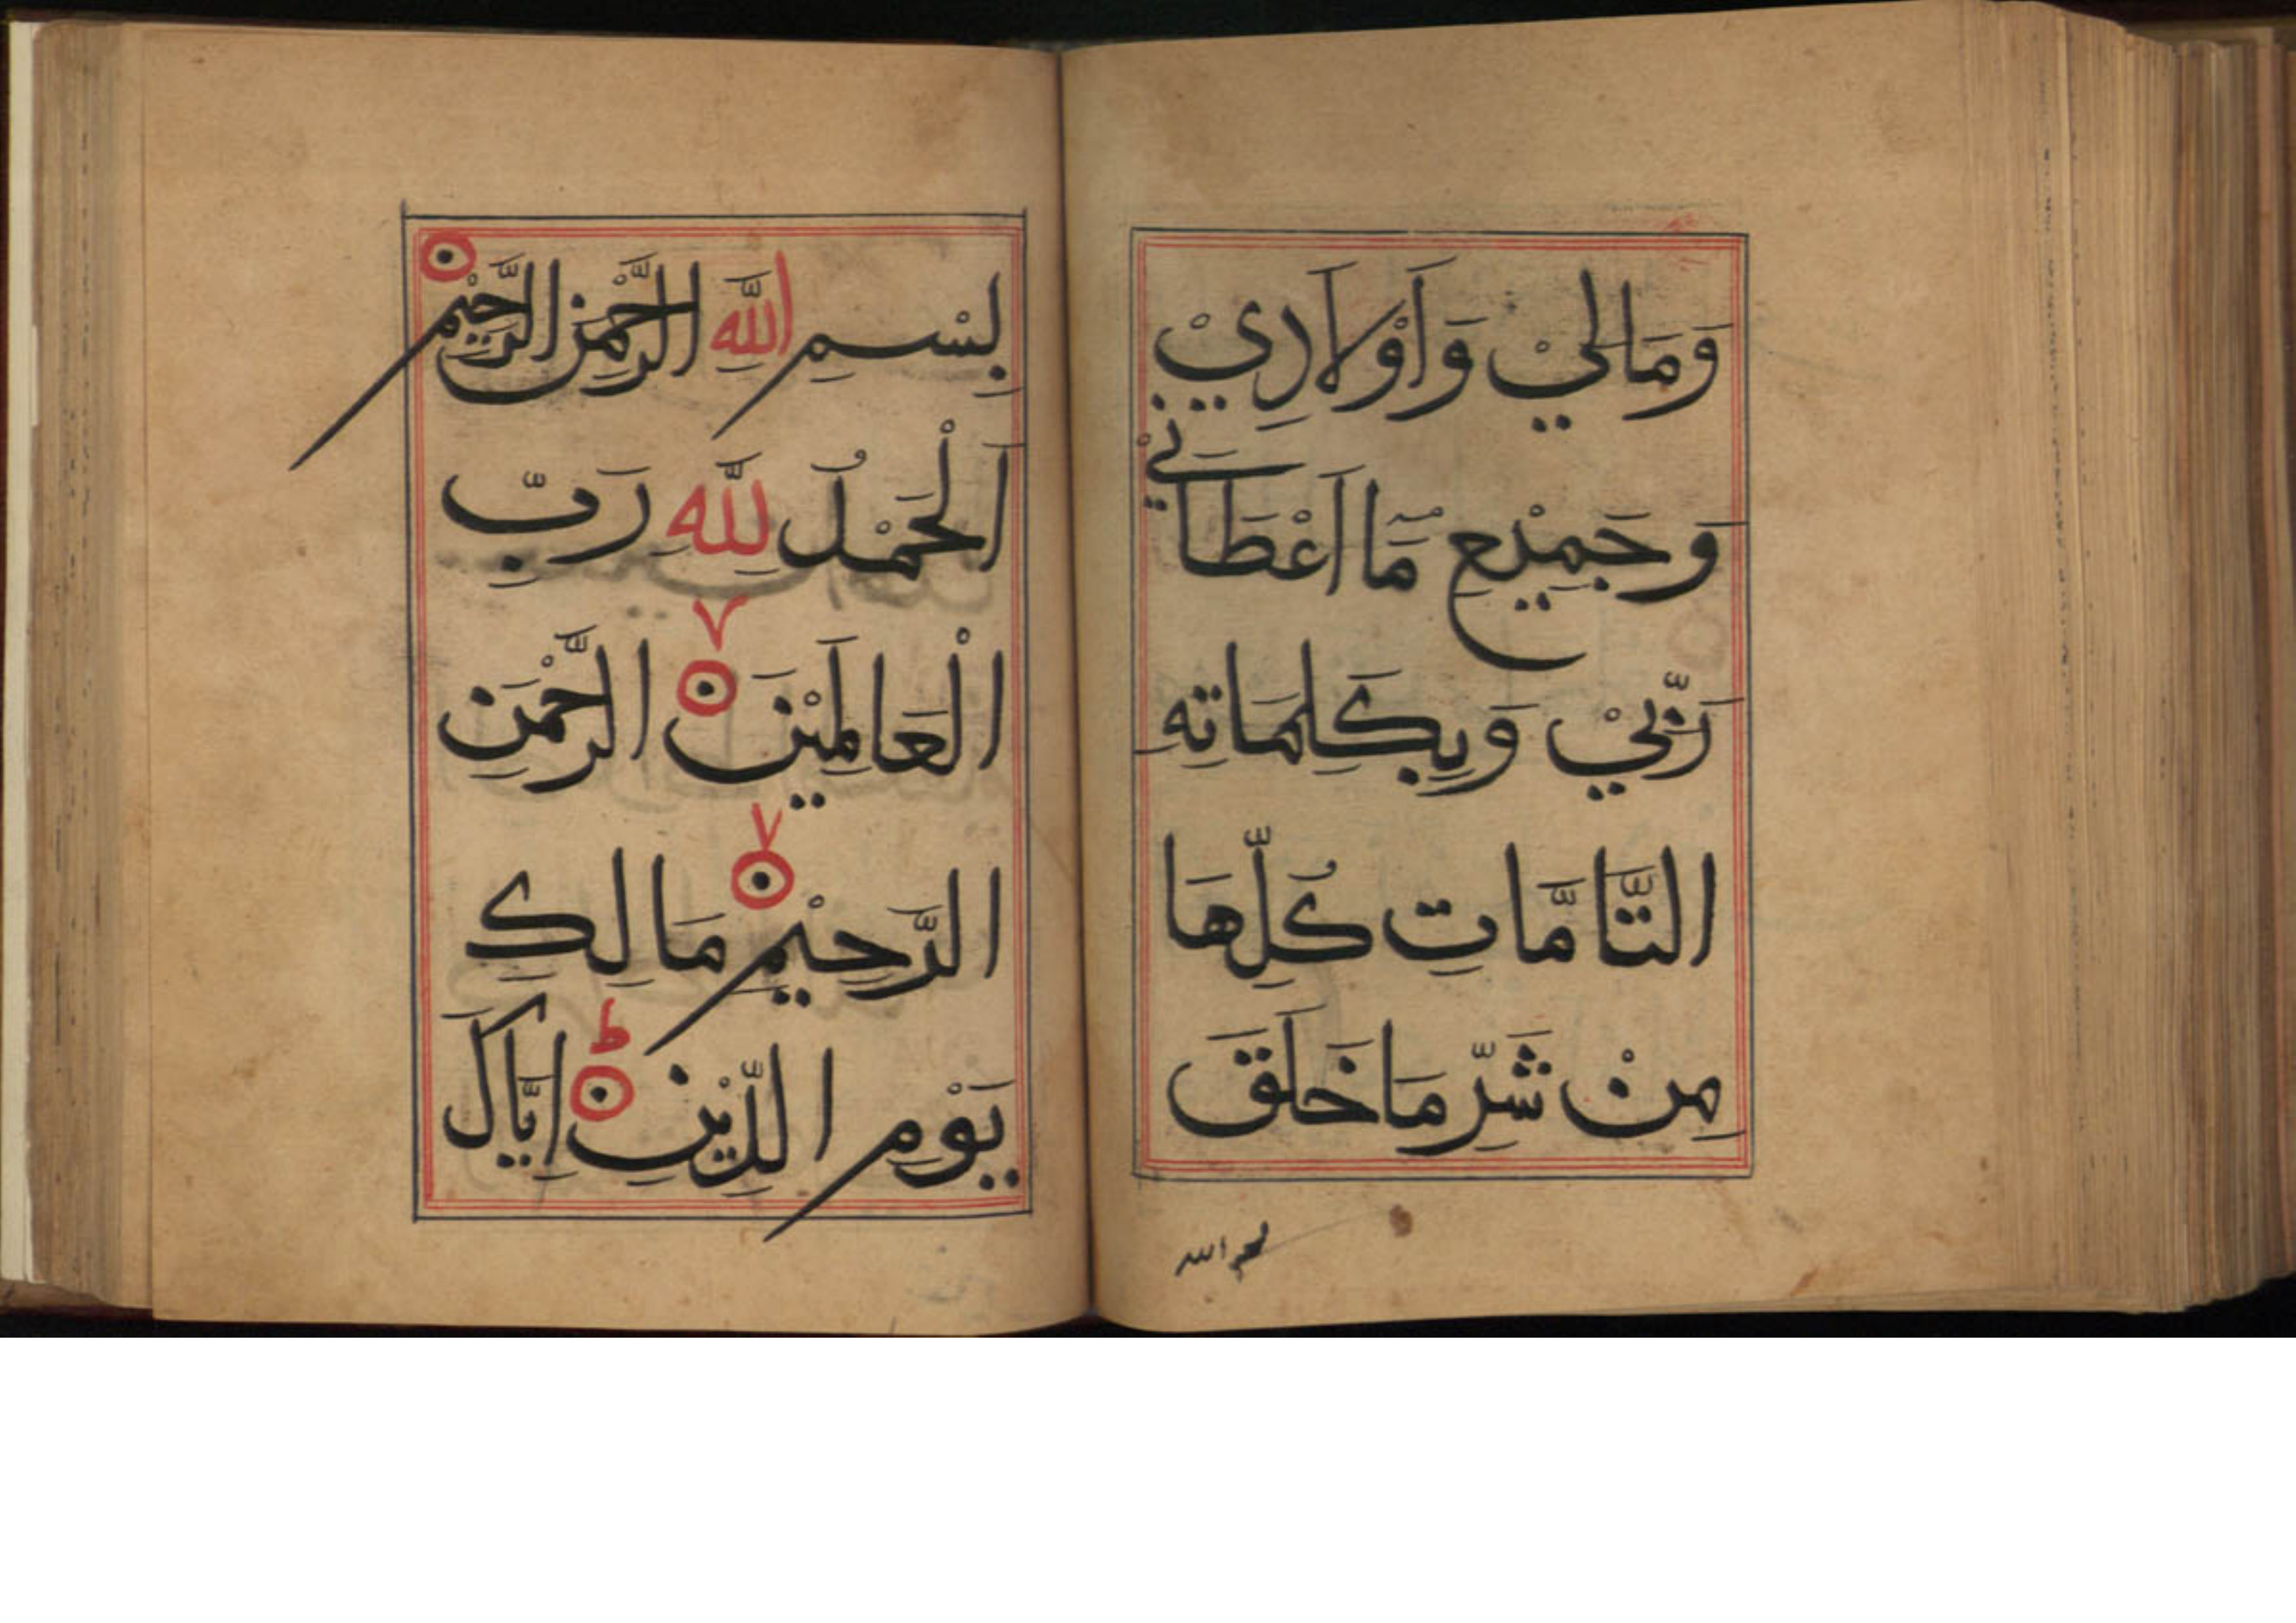 وَمَالِيْ وَاَوْلَادِيْ
وَجَمِيْعِ مَآ اَعْطَانِيْ
رَبِّيْ وَبِكَلِمَاتِهِ
التَّامَّاتِ كُلِّهَا
مِنْ شَرِّ مَا خَلَقَ
بسم الله
بِسْمِ اللّٰهِ الرَّحْمٰنِ الرَّحِيْمِ
اَلْحَمْدُ لِلّٰهِ رَبِّ
الْعَالَمِيْنَ ۷ الرَّحْمٰنِ
الرَّحِيْمِ ۷ مَالِكِ
يَوْمِ الدِّيْنِ ط اِيَّاكَ